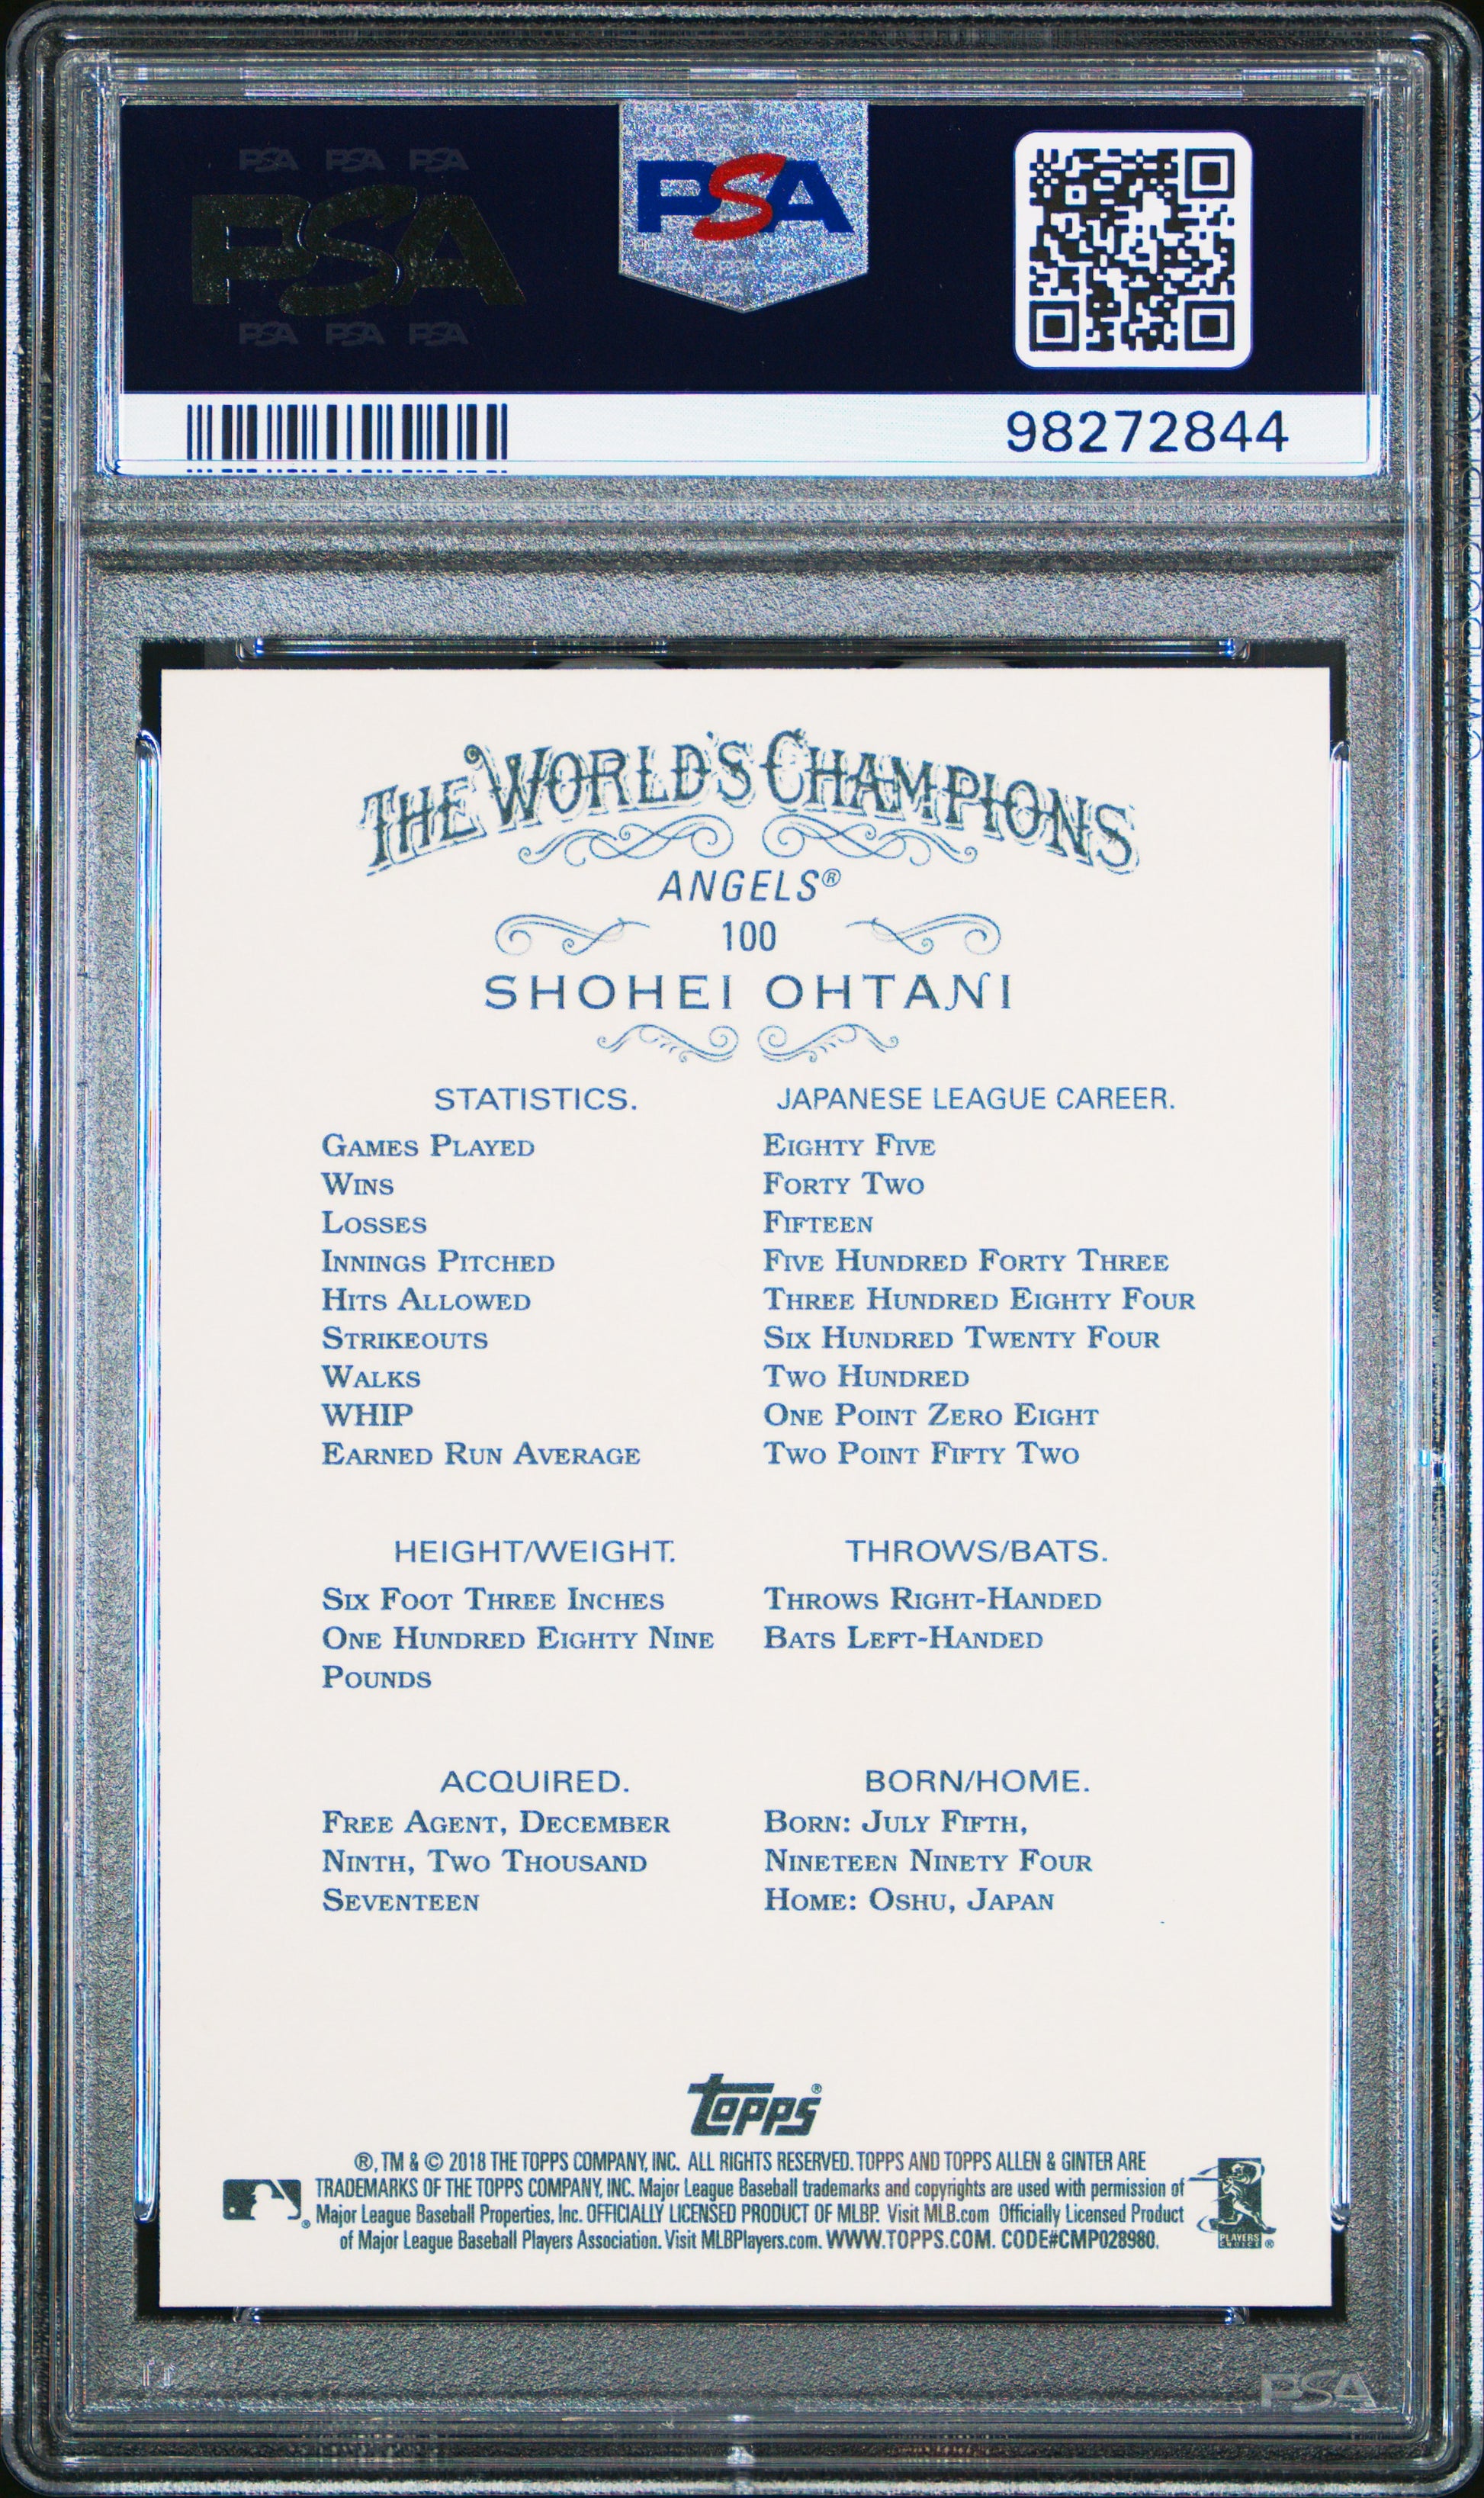 PSA PSA PSA
PSA
PSA PSA PSA
PSA
98272844
THE WORLD'S CHAMPIONS
ANGELS®
100
SHOHEI OHTANI
STATISTICS. JAPANESE LEAGUE CAREER.
GAMES PLAYED EIGHTY FIVE
WINS FORTY TWO
LOSSES FIFTEEN
INNINGS PITCHED FIVE HUNDRED FORTY THREE
HITS ALLOWED THREE HUNDRED EIGHTY FOUR
STRIKEOUTS SIX HUNDRED TWENTY FOUR
WALKS TWO HUNDRED
WHIP ONE POINT ZERO EIGHT
EARNED RUN AVERAGE TWO POINT FIFTY TWO
HEIGHT/WEIGHT.
SIX FOOT THREE INCHES
ONE HUNDRED EIGHTY NINE
POUNDS
THROWS/BATS.
THROWS RIGHT-HANDED
BATS LEFT-HANDED
ACQUIRED.
FREE AGENT, DECEMBER
NINTH, TWO THOUSAND
SEVENTEEN
BORN/HOME.
BORN: JULY FIFTH,
NINETEEN NINETY FOUR
HOME: OSHU, JAPAN
topps®
®, TM & © 2018 THE TOPPS COMPANY, INC. ALL RIGHTS RESERVED. TOPPS AND TOPPS ALLEN & GINTER ARE
TRADEMARKS OF THE TOPPS COMPANY, INC. Major League Baseball trademarks and copyrights are used with permission of
Major League Baseball Properties, Inc. OFFICIALLY LICENSED PRODUCT OF MLBP. Visit MLB.com Officially Licensed Product
of Major League Baseball Players Association. Visit MLBPlayers.com. WWW.TOPPS.COM. CODE#CMP028980.
PLAYERS
CHOICE ®
PSA